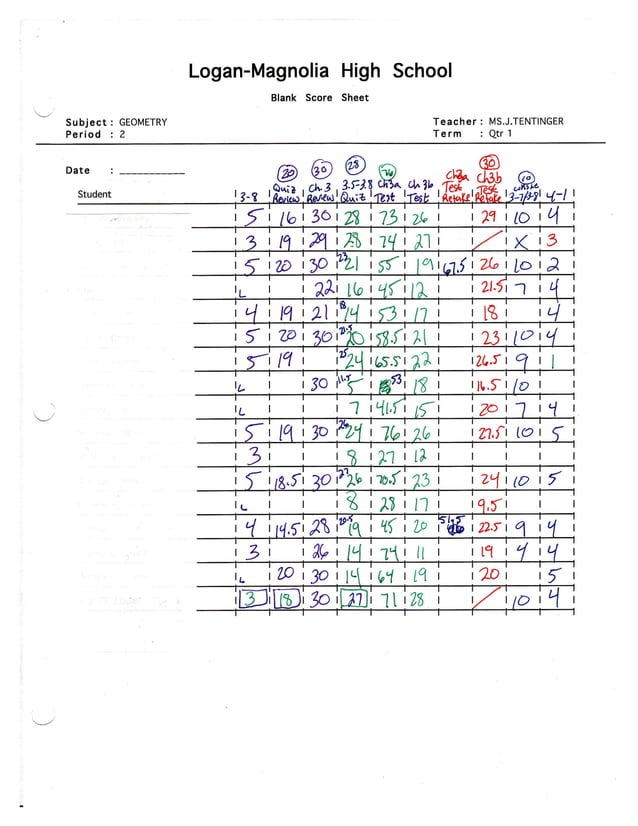 Logan-Magnolia High School
Blank Score Sheet
Subject : GEOMETRY Teacher : MS.J.TENTINGER
Period : 2 Term : Qtr 1
20 30 28 76 30 10
Date : ____________
Student 3-8 Quiz Review Ch. 3 Review 3.5-3.8 Quiz Ch3a Test Ch 3b Test Ch3a Test Retake Ch3b Test Retake 3-7/3-8 4-1
5 16 30 28 73 26 29 10 4
3 19 29 28 74 27 / X 3
5 20 30 23 21 55 19 67.5 26 10 2
L 22 16 45 12 21.5 7 4
4 19 21 18 14 53 17 18 4
5 20 30 20.5 20 58.5 21 23 10 4
5 19 25 24 65.5 22 26.5 9 1
L 30 11.5 5 53 18 16.5 10
L 7 41.5 15 20 7 4
5 19 30 26 24 76 26 27.5 10 5
3 8 27 12
5 18.5 30 27 26 70.5 23 24 10 5
L 8 28 17 9.5
4 14.5 28 20.5 19 45 20 51.5 22.5 9 4
3 26 14 74 11 19 4 4
L 20 30 14 64 19 20 5
3 18 30 27 71 28 / 10 4